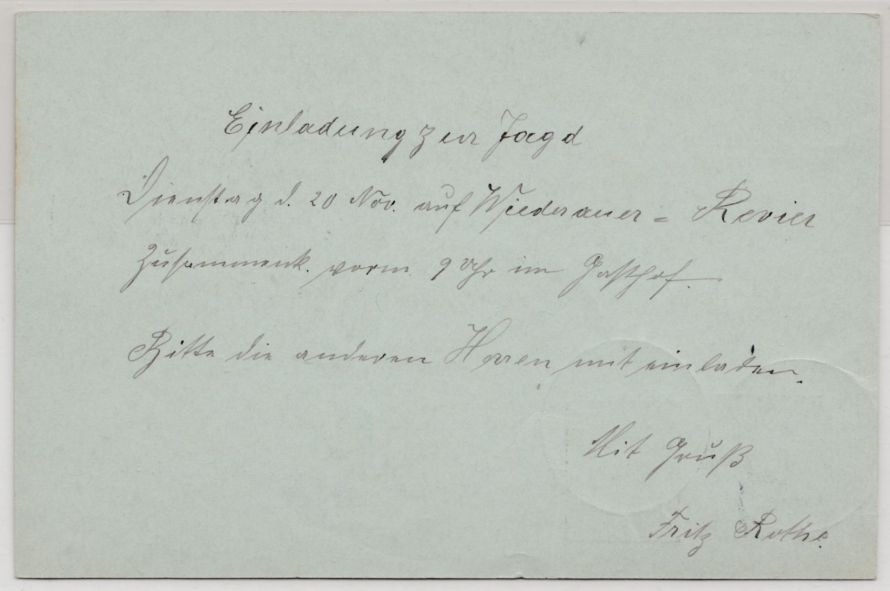 Einladung zur Jagd
Dienstag d. 20 Nov. auf Wiederauer = Revier
Zusammenk. vorm. 9 Uhr im Gasthof.
Bitte die anderen Herren mit einladen.
Mit Gruß
Fritz Rothe.